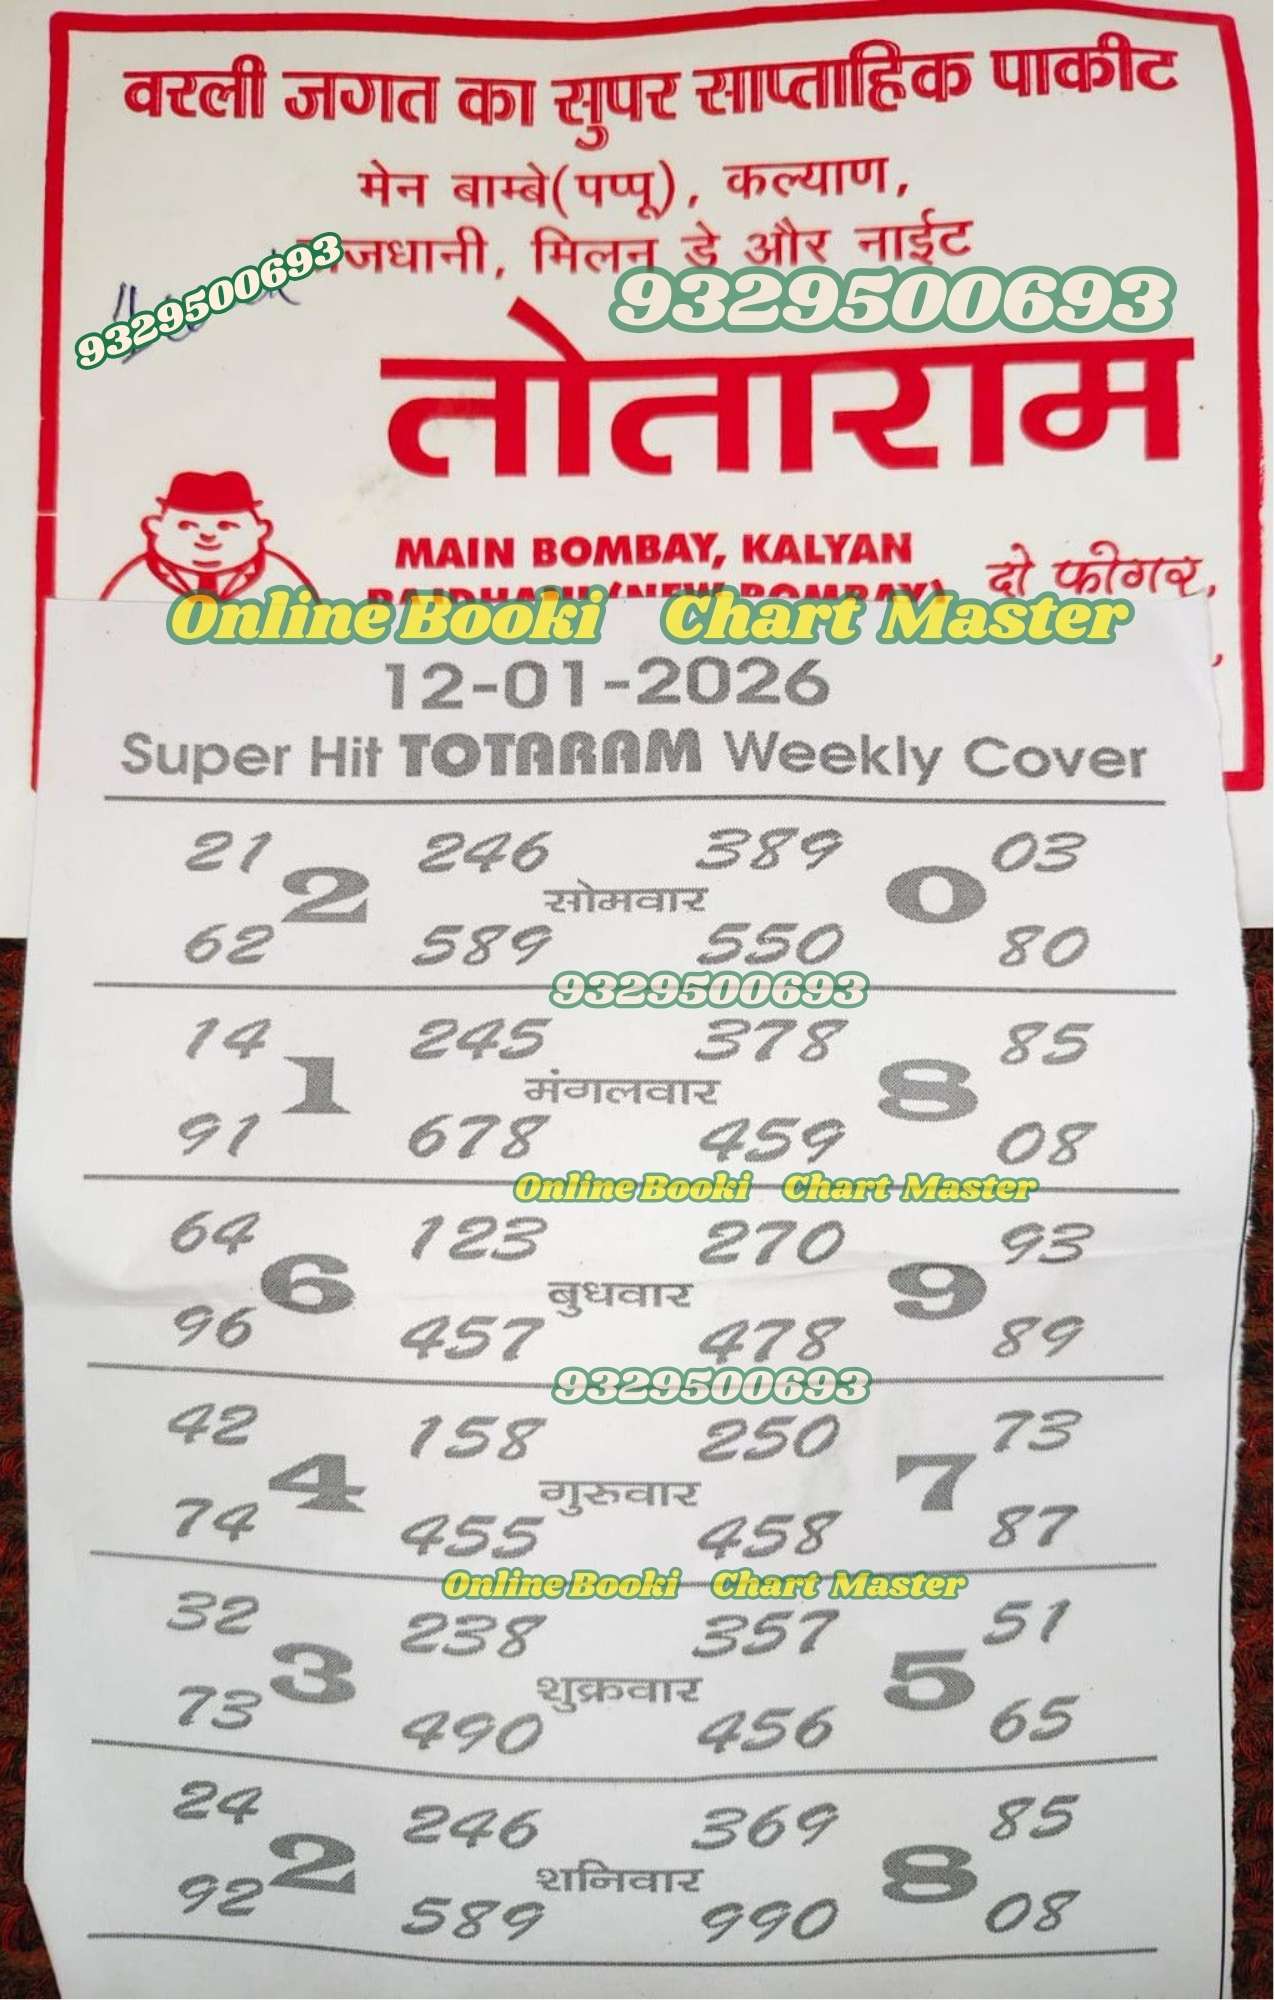 वरली जगत का सुपर साप्ताहिक पाकीट
मेन बाम्बे(पप्पू), कल्याण,
राजधानी, मिलन डे और नाईट
9329500693
9329500693
तोताराम
MAIN BOMBAY, KALYAN
RAJDHANI (NEW BOMBAY)
दो फीगर,
Online Booki Chart Master
12-01-2026
Super Hit TOTARAM Weekly Cover
21 246 389 03
2 सोमवार 0
62 589 550 80
9329500693
14 245 378 85
1 मंगलवार 8
91 678 459 08
Online Booki Chart Master
64 123 270 93
6 बुधवार 9
96 457 478 89
9329500693
42 158 250 73
4 गुरुवार 7
74 455 458 87
Online Booki Chart Master
32 238 357 51
3 शुक्रवार 5
73 490 456 65
24 246 369 85
2 शनिवार 8
92 589 990 08